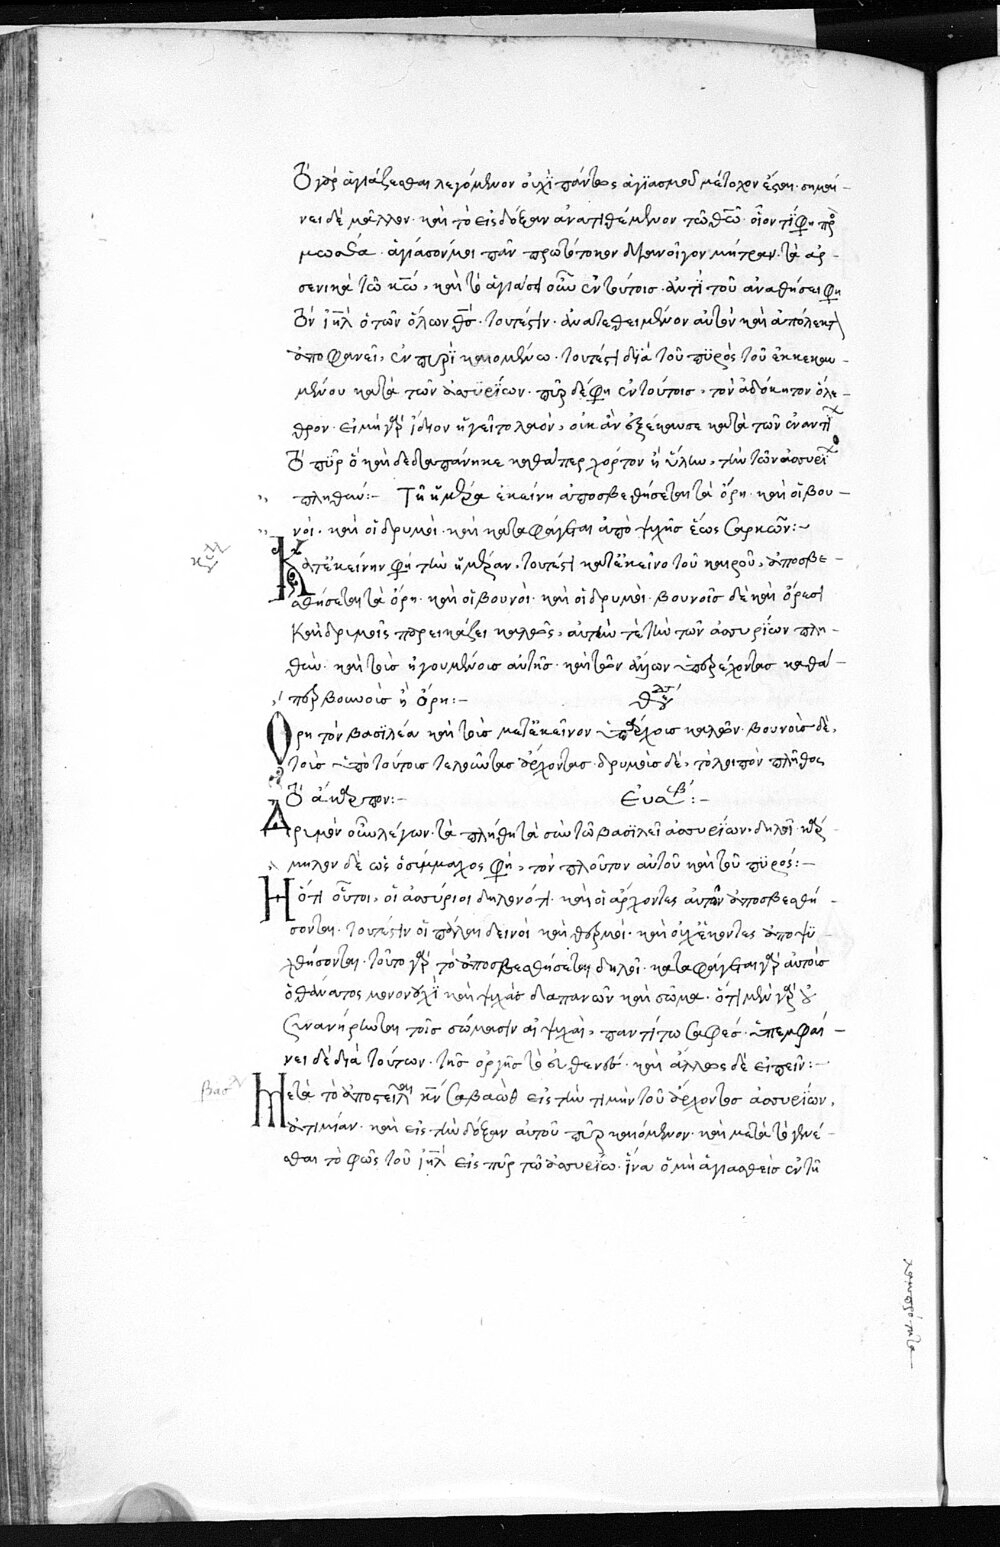 Τὸ γὰρ ἁγιάζεσθαι λεγόμενον οὐχὶ πάντως ἁγιασμοῦ μέτοχον ἔσται· σημαί-
νει δὲ μᾶλλον καὶ τὸ εἰς δόξαν ἀνατιθέμενον τῷ θῶ· οἷόν τί φη πρ
μωσέα· ἁγίασόν μοι πᾶν πρωτότοκον διανοῖγον μήτραν· τὰ ἀρ-
σενικὰ τῷ κῶ, καὶ τὸ ἁγίασι οὖν ἐν τούτοις ἀντὶ τοῦ ἀναθήσει φη
Τὸν ιηλ ὁ τῶν ὅλων θς· τουτέστιν· ἀνατεθειμένον αὐτὸν καὶ ἀπόλεκτ
ἀποφανεῖ, ἐν πυρὶ καιομένω· τουτέστι διὰ τοῦ πυρὸς τοῦ ἐκκεκαυ-
μένου κατὰ τῶν ἀσυρίων· πῦρ δέ φη ἐν τούτοις, τὸν ἀδόκητον ὄλε-
θρον· εἰ μὴ γὰρ ἴδιον ἡγεῖτο λαόν, οὐκ ἂν ἐξέκαυσε κατὰ τῶν ἐναντί
Τὸ πῦρ ὃ καὶ δεδαπάνηκε καθάπερ χόρτον ἢ ὕλην, τὴν τῶν ἀσυρί
πληθύν:- Τῆ ἡμέρα ἐκείνη ἀποσβεσθήσεται τὰ ὄρη· καὶ οἱ βου-
νοί· καὶ οἱ δρυμοί· καὶ καταφάγεται ἀπὸ ψυχῆς ἕως σαρκῶν:-
Κατ ἐκείνην φη τὴν ἡμέραν, τουτέστι κατ ἐκεῖνο τοῦ καιροῦ, ἀποσβε-
σθήσεται τὰ ὄρη· καὶ οἱ βουνοί· καὶ οἱ δρυμοί· βουνοῖς δὲ καὶ ὄρεσι
Καὶ δρυμοῖς παρεικάζει καλῶς, αὐτήν τε τὴν τῶν ἀσυρίων πλη-
θύν· καὶ τοὺς ἡγουμένους αὐτῆς· καὶ τῶν ἄλλων ὑπερέχοντας καθά-
περ βουνοὺς ἢ ὄρη:-
Ὄρη τὸν βασιλέα καὶ τοὺς μετ ἐκεῖνον ὑπάρχους καλῶν· βουνοὺς δὲ,
τοὺς ὑπὸ τούτοις τελοῦντας ἄρχοντας· δρυμοὺς δὲ, τὸ λοιπὸν πλῆθος
Τὸ ἄκαρπον:- Ευσβ:-
Δρυμὸν οὖν λέγων· τὰ πλήθη τὰ σὺν τῷ βασιλεῖ ἀσυρίων δηλοῖ· κάρ-
μηλον δὲ ὡς ὁ σύμμαχος φη, τὸν πλοῦτον αὐτοῦ καὶ τοῦ πυρός:-
Ἢ ὅτι οὗτοι, οἱ ἀσύριοι δηλονότι· καὶ οἱ ἄρχοντες αὐτῶν ἀποσβεσθή-
σονται· τουτέστιν οἱ πάλαι δεινοὶ καὶ θερμοί· καὶ οὐχ ἑκόντες ἀποψυ
χθήσονται· τοῦτο γὰρ τὸ ἀποσβεσθήσεται δηλοῖ· καταφάγεται γὰρ αὐτοὺς
ὁ θάνατος μονονουχὶ καὶ ψυχὰς δαπανῶν καὶ σῶμα· ὅτι μὲν γὰρ οὐ
συνανήρτωται τοῖς σώμασιν αἱ ψυχαί, παντί τω σαφές· ὑπεμφαί-
νει δὲ διὰ τούτων· τῆς ὀργῆς τὸ εὐσθενές· καὶ ἄλλως δὲ εἰπεῖν:-
βασ
Μετὰ τὸ ἀποστεῖλαι κν σαβαὼθ εἰς τὴν τιμὴν τοῦ ἄρχοντος ἀσυρίων,
ἀτιμίαν· καὶ εἰς τὴν δόξαν αὐτοῦ πῦρ καιόμενον· καὶ μετὰ τὸ γενέ-
σθαι τὸ φῶς τοῦ ιηλ εἰς πῦρ τῷ ἀσυρίω· ἵνα ὁ μὴ ἁγιασθεὶς ἐν τῆ